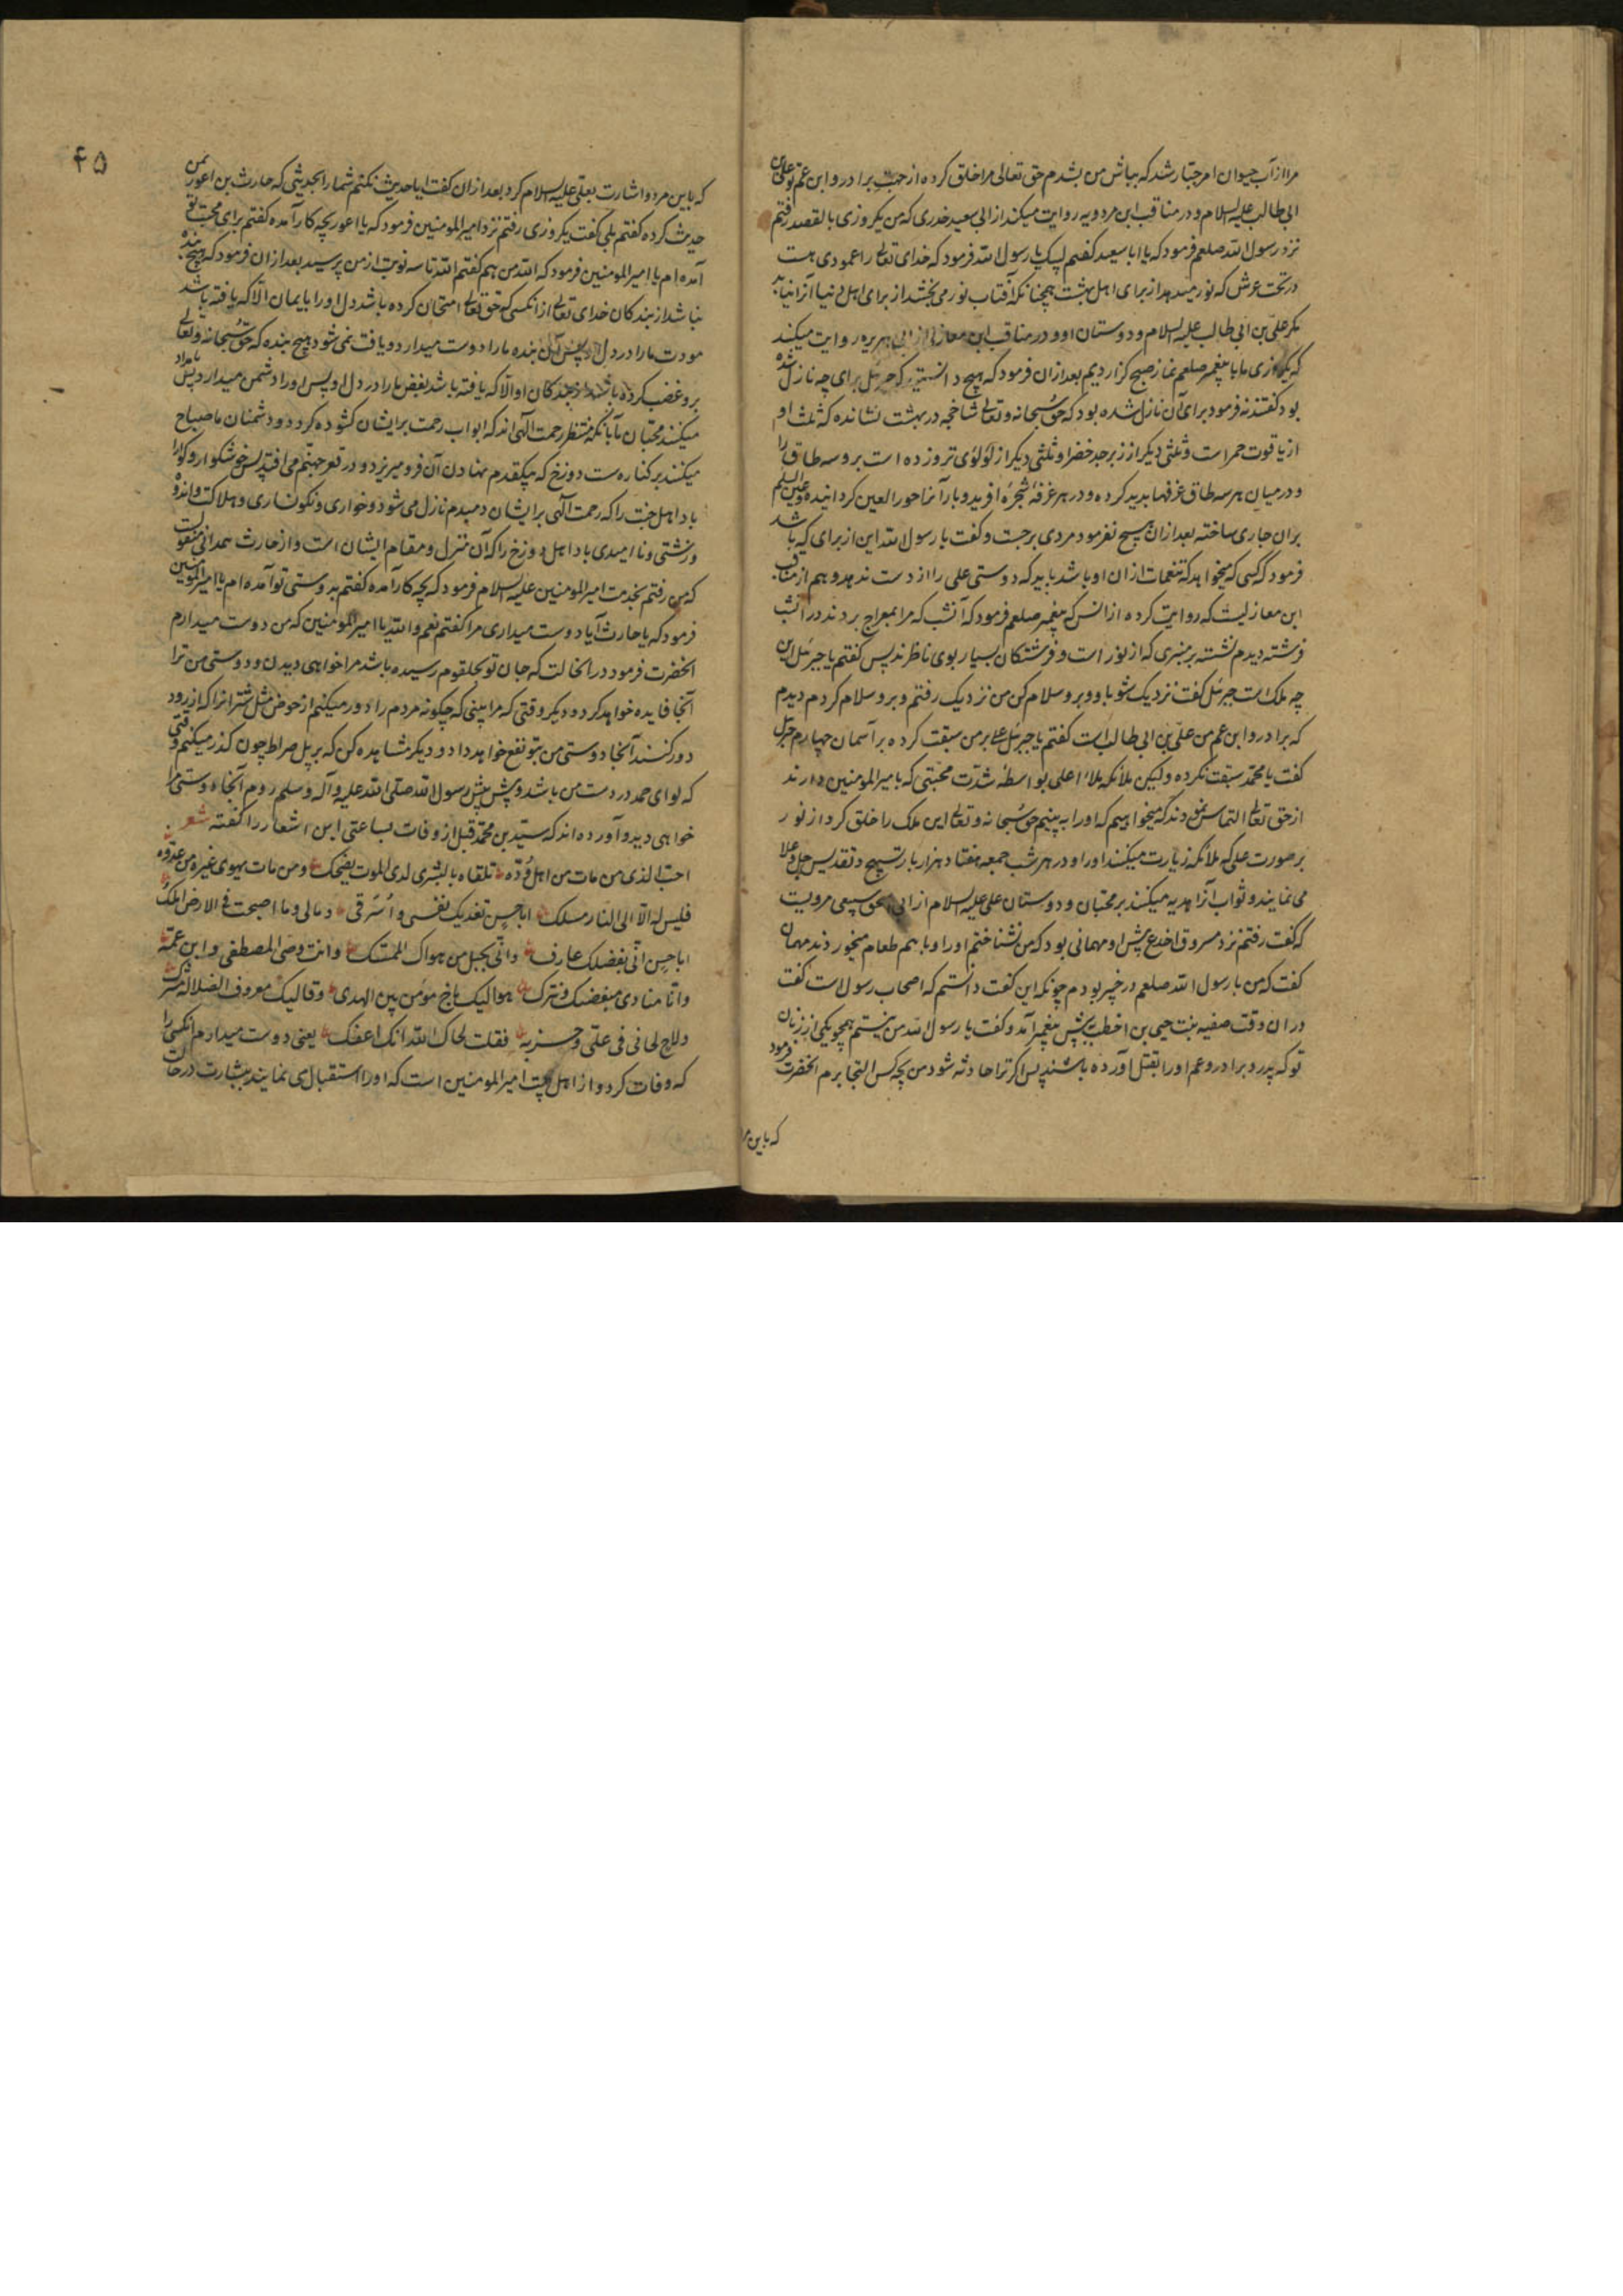 مرا از آب حیوان امر جبار شد که بباش من بشدم حق تعالی مرا خلق کرده از جهت برادر و ابن عم تو علی بن
ابی طالب علیه السلام و در مناقب ابن مردویه روایت میکند از ابی سعید خدری که من یکروزی بالقصد رفتم
نزد رسول الله صلعم فرمود که یا ابا سعید کفتم لبیک یا رسول الله فرمود که خدای تعالی را عمودی هست
در تحت عرش که نور میدهد از برای اهل بهشت همچنانکه آفتاب نور می بخشد از برای اهل دنیا آنرا نیابد
مکر علی بن ابی طالب علیه السلام و دوستان او و در مناقب ابن مغازلی از ابی هریره روایت میکند
که یکروزی ما با پیغمبر صلعم نماز صبح کزاردیم بعد از ان فرمود که هیچ دانستید که جبرئیل برای چه نازل شده
بود کفتند نه فرمود برای آن نازل شده بود که حق سبحانه و تعالی شاخچه در بهشت نشانده که ثلث او
از یاقوت حمراست و ثلثی دیکر از زبرجد خضرا و ثلثی دیکر از لؤلؤی تر و زده است بر و سه طاق را
و در میان هر سه طاق غرفها بدید کرده و در هر غرفهٔ شجرهٔ افرید و بار آنها حور العین کردانیده و عین السلم
بران جاری ساخته بعد از ان هیچ نفرمود مردی برجست و کفت یا رسول الله این از برای که باشد
فرمود که کسی که میخواهد که تنعمات از ان او باشد باید که دوستی علی را از دست ندهد و هم از مناقب
ابن مغازلیست که روایت کرده از انس که پیغمبر صلعم فرمود که آنشب که مرا بمعراج بردند در آنشب
فرشته دیدم نشسته بر منبری که از نور است و فرشتکان بسیار بوی ناظرند پس کفتم یا جبرئیل این
چه ملک است جبرئیل کفت نزدیک شو باو و برو سلام کن من نزدیک رفتم و برو سلام کردم دیدم
که برادر و ابن عم من علی بن ابی طالب است کفتم یا جبرئیل علی بر من سبقت کرده بر آسمان چهارم جبرئیل
کفت یا محمد سبقت نکرده ولیکن ملائکه ملاء اعلی بواسطهٔ شدت محبتی که بامیر المومنین دارند
از حق تعالی التماس نمودند که میخواهیم که او را به بینیم حق سبحانه و تعالی این ملک را خلق کرد از نور
بر صورت علی که ملائکه زیارت میکنند او را و در هر شب جمعه هفتاد هزار بار تسبیح و تقدیس جل و علا
می نمایند و ثواب آنرا هدیه میکنند بر محبان و دوستان علی علیه السلام از ابی اسحق سبیعی مرویست
که کفت رفتم نزد مسروق اجدع پیش او مهمانی بود که من نشناختم او را و با هم طعام میخوردند مهمان
کفت که من با رسول الله صلعم در خیبر بودم چونکه این کفت دانستم که اصحاب رسول است کفت
در ان وقت صفیه بنت حیی بن اخطب پیش پیغمبر آمد و کفت یا رسول الله من نیستم همچو یکی از زنان
تو که پدر و برادر و عم او را بقتل آورده باشند پس اکر ترا حادثه شود من بچه کس التجا برم آنحضرت فرمود
که باین مر
۴۵
که باین مرد و اشارت بعلی علیه السلام کرد بعد از ان کفت ایا حدیث نکنم شما را بحدیثی که حارث بن اعور بمن
حدیث کرده کفتم بلی کفت یکروزی رفتم نزد امیر المومنین فرمود که یا اعور بچه کار آمده کفتم برای محبت تو
آمده ام یا امیر المومنین فرمود که الله من هم کفتم الله تا سه نوبت از من پرسید بعد از ان فرمود که هیچ بنده
نباشد از بندکان خدای تعالی از انکسی که حق تعالی امتحان کرده باشد دل او را بایمان الا که یافته باشد
مودت ما را در دل او پس آن بنده ما را دوست میدارد و یافت نمی شود هیچ بنده که حق سبحانه و تعالی
برو غضب کرده باشد از بندکان او الا که یافته باشد بغض ما را در دل او پس او را دشمن میدارد پس بامداد
میکنند محبان ما بآنکه منتظر رحمت آلهی اند که ابواب رحمت برایشان کشوده کردد و دشمنان ما صباح
میکنند بر کناره ست دوزخ که بیکقدم نهادن آن فرو میریزد و در قعر جهنم می افتد پس خوشکوار و کوارا
باد اهل جنت را که رحمت آلهی برایشان دمبدم نازل می شود و خواری و نکونساری و هلاکت و اندوه
و زشتی و ناامیدی باد اهل دوزخ را که آن منزل و مقام ایشان است و از حارث همدانی منقولست
که من رفتم بخدمت امیر المومنین علیه السلام فرمود که بچه کار آمده کفتم بدوستی تو آمده ام یا امیر المومنین
فرمود که یا حارث آیا دوست میداری مرا کفتم نعم والله یا امیر المومنین که من دوست میدارم
آنحضرت فرمود در آنحالت که جان تو بحلقوم رسیده باشد مرا خواهی دیدن و دوستی من ترا
آنجا فایده خواهد کرد و دیکر وقتی که مرا بینی که چکونه مردم را دور میکنم از حوض مثل شترانرا که از رود
دور کنند آنجا دوستی من بتو نفع خواهد داد و دیکر مشاهده کن که بر پل صراط چون کذر میکنم وقتی
که لوای حمد در دست من باشد و پیش پیش رسول الله صلی الله علیه و آله و سلم روم آنجا دوستی مرا
خواهی دید و آورده اند که سید بن محمد قبل از وفات بساعتی این اشعار را کفته شعر
احب الذی من مات من اهل وده تلقاه بالبشری لدی الموت یضحک و من مات یهوی غیره من عدوه
فلیس له الا الی النار مسلک ابا حسن تفدیک نفسی و اسرتی و مالی و ما اصبحت فی الارض املک
ابا حسن انی بفضلک عارف و انی بحبل من هواک لممسک و انت وصی المصطفی و ابن عمه
و انا منادی مبغضیک و نترک موالیک ناج مومن بین الهدی و قالیک معروف الضلالة مشرک
و لاح لحانی فی علی و حزبه فقلت لحاک الله انک اعفک یعنی دوست میدارم انکسی را
که وفات کرد و از اهل محبت امیر المومنین است که او را استقبال می نمایند ببشارت در حالت